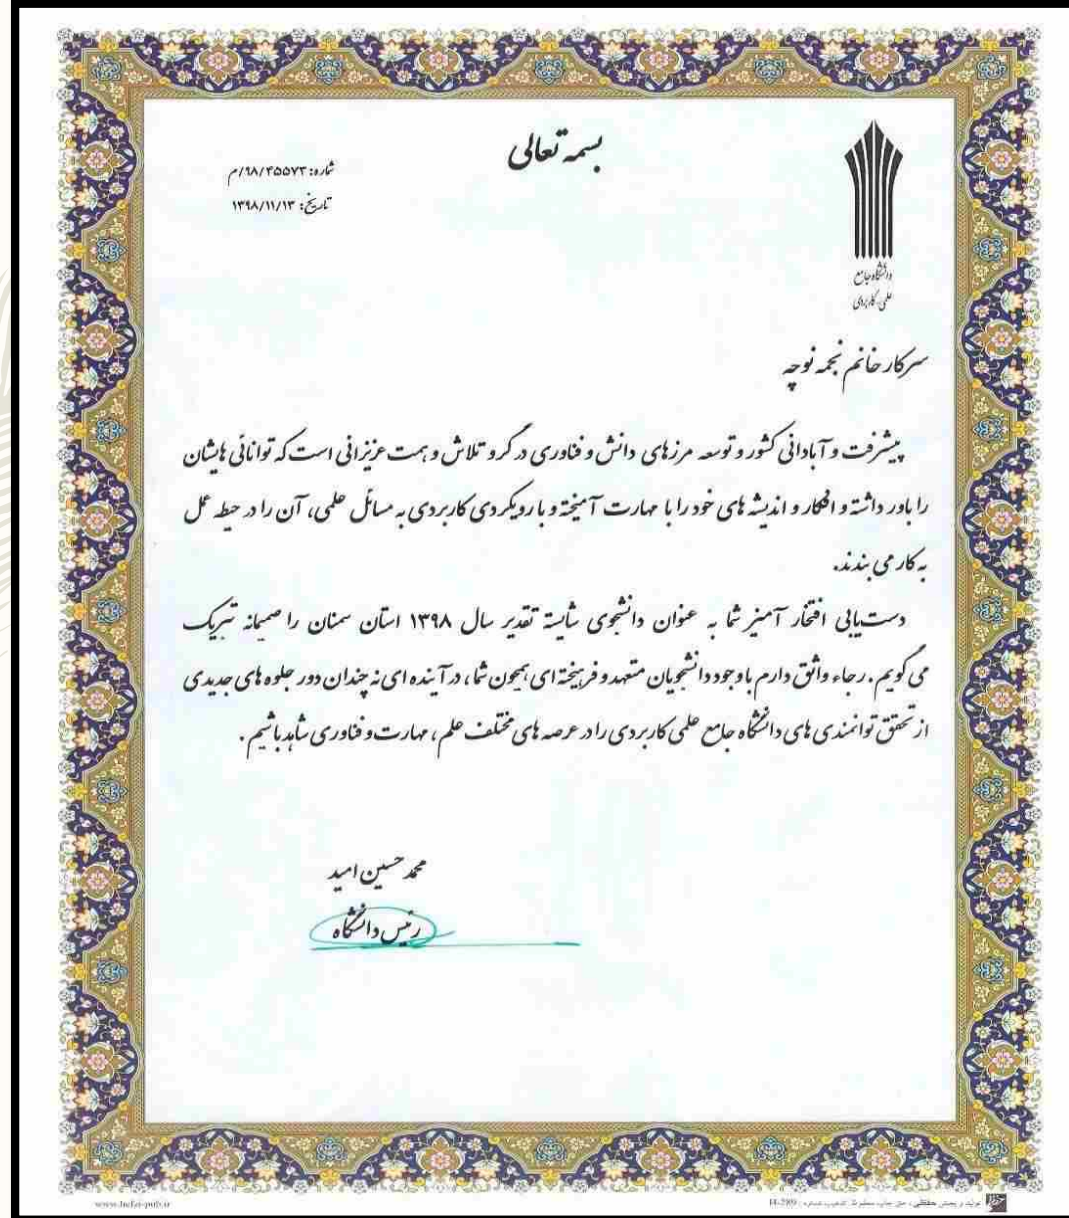 بسمه تعالی
شماره: ۹۸/۴۵۵۷۳/م
تاریخ: ۱۳۹۸/۱۱/۱۳
دانشگاه جامع
علمی کاربردی
سرکار خانم نجمه نوچه
پیشرفت و آبادانی کشور و توسعه مرزهای دانش و فناوری در گرو تلاش و همت عزیزانی است که توانائی هایشان
را باور داشته و افکار و اندیشه های خود را با مهارت آمیخته و با رویکردی کاربردی به مسائل علمی، آن را در حیطه عمل
به کار می بندند.
دست‌یابی افتخار آمیز شما به عنوان دانشجوی شایسته تقدیر سال ۱۳۹۸ استان سمنان را صمیمانه تبریک
می گویم. رجاء واثق دارم با وجود دانشجویان متعهد و فرهیخته ای همچون شما، در آینده ای نه چندان دور جلوه های جدیدی
از تحقق توانمندی های دانشگاه جامع علمی کاربردی را در عرصه های مختلف علم، مهارت و فناوری شاهد باشیم.
محمد حسین امید
رئیس دانشگاه